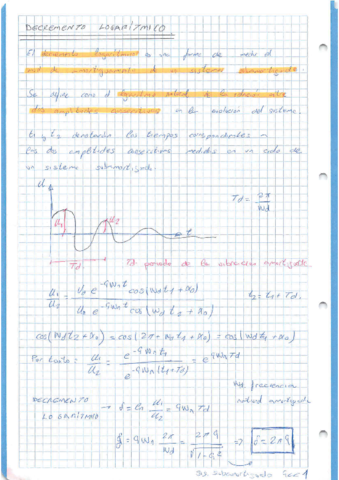 DECREMENTO LOGARÍTMICO
El decremento logarítmico es una forma de medir el
nivel de amortiguamiento de un sistema subamortiguado.
Se define como el logaritmo natural de la relación entre
dos amplitudes consecutivas en la evolución del sistema.
t1 y t2 denotarán los tiempos correspondientes a
las dos amplitudes sucesivas medidas en un ciclo de
un sistema subamortiguado
u
u1
u2
t
Td
Td = 2π / Wd
Td: periodo de la vibración amortiguada
u1/u2 = U0 e^-ςWnt cos(Wd t1 + α0) / U0 e^-ςWnt cos(Wd t2 + α0)
t2 = t1 + Td.
cos(Wd t2 + α0) = cos(2π + Wd t1 + α0) = cos(Wd t1 + α0)
Por tanto: u1/u2 = e^-ςWn t1 / e^-ςWn(t1+Td) = e^ςWnTd
Wd: frecuencia
natural amortiguada
DECREMENTO
LOGARITMICO → δ = ln u1/u2 = ςWn Td
δ = ςWn 2π/Wd = 2πς / √1-ς² ⇒ δ = 2πς